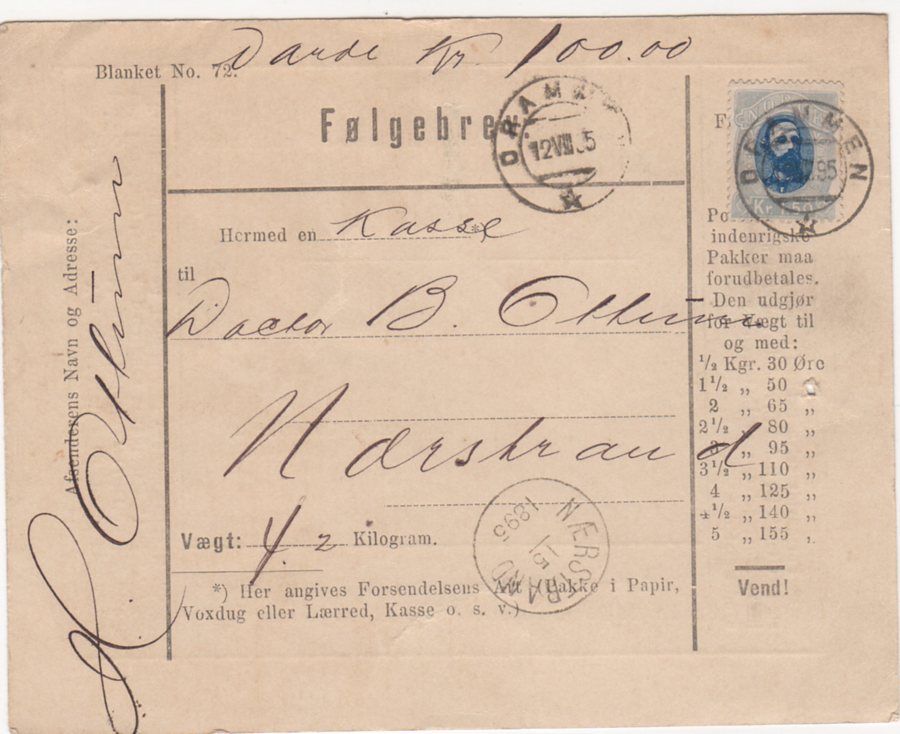 Værdi Kr 100.00
Blanket No. 72.
Følgebre
DRAMMEN
12 VIII 95
DRAMMEN
95
Kr. 1.50
Afsenderens Navn og Adresse:
Otthun
Hermed en Kasse *)
til
Doctor B. Otthun
Nærstrand
Vægt: 4.2 Kilogram.
NÆRSTRAND
15
1895
*) Her angives Forsendelsens Art (Pakke i Papir,
Voxdug eller Lærred, Kasse o. s. v.)
indenrigske
Pakker maa
forudbetales.
Den udgjør
for Vægt til
og med:
1/2 Kgr. 30 Øre
1 1/2 „ 50 „
2 „ 65 „
2 1/2 „ 80 „
3 „ 95 „
3 1/2 „ 110 „
4 „ 125 „
4 1/2 „ 140 „
5 „ 155 „
Vend!